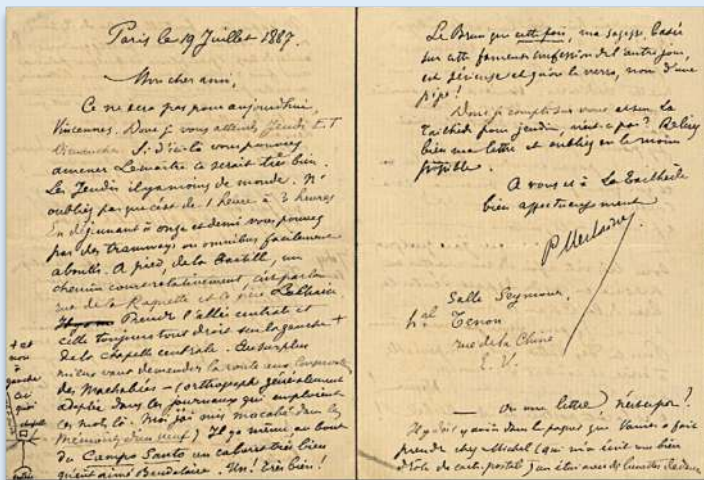 Paris le 19 Juillet 1887.
Mon cher ami,
Ce ne sera pas pour aujourd'hui,
Vincennes. Donc je vous attends Jeudi et
Dimanche. Si d'ici là vous pouvez
amener Lemaître ce serait très bien.
Les Jeudis il y a moins de monde. N'
oubliez pas que c'est de 1 heure à 3 heures
En déjeunant à onze et demi vous pouvez
par des tramways ou omnibus facilement
aboutir. A pied, de la Bastille, un
chemin c'est par la
rue de la Roquette et le père Lachaise
Prendre l'allée centrale et
toujours tout droit sur la gauche +
de la chapelle centrale. Au surplus
mieux vaut demander la route
des Machabées - (orthographe généralement
adoptée dans les journaux qui emploient
ces mots là. Moi j'ai mis macabé dans les
Mémoires d'un veuf) Il y a même au bout
du Campo Santo un cabaret très bien
qu'eût aimé Baudelaire. Un! très bien!
+ et
non
à
gauche
Le Brun que cette fois, ma sagesse, basée
sur cette fameuse confession de l'autre jour,
est sérieuse et nom d'une
pipe!
Donc je compte sur vous et sur La
Tailhède pour jeudi, n'est-ce pas? Relisez
bien ma lettre et oubliez en le moins
possible.
A vous et à La Tailhède
bien affectueusement
P Verlaine
Salle Seymour,
Tenon
rue de la Chine
E. V.
— une lettre! n'est-ce pas?
Il y avait dans le paquet que Vanier a fait
prendre chez Michel (qui m'a écrit une bien
drôle de carte postale) un étui avec des lunettes dedans